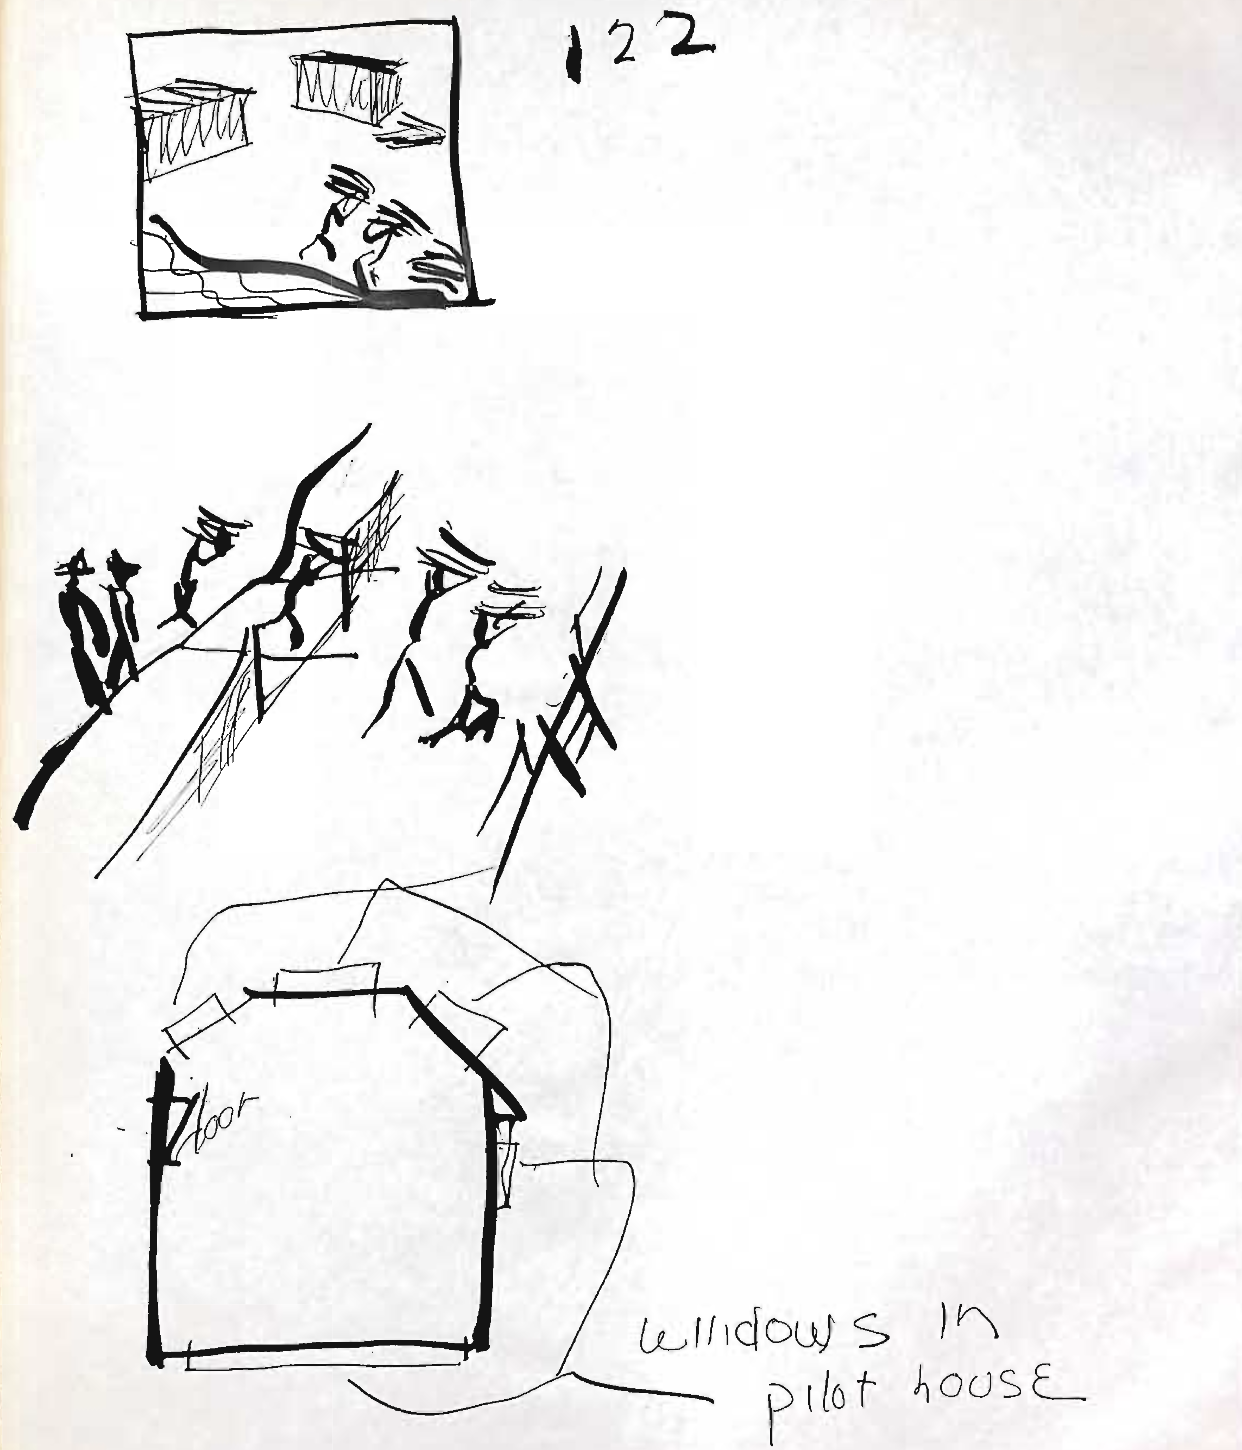 122
door
windows in
pilot house